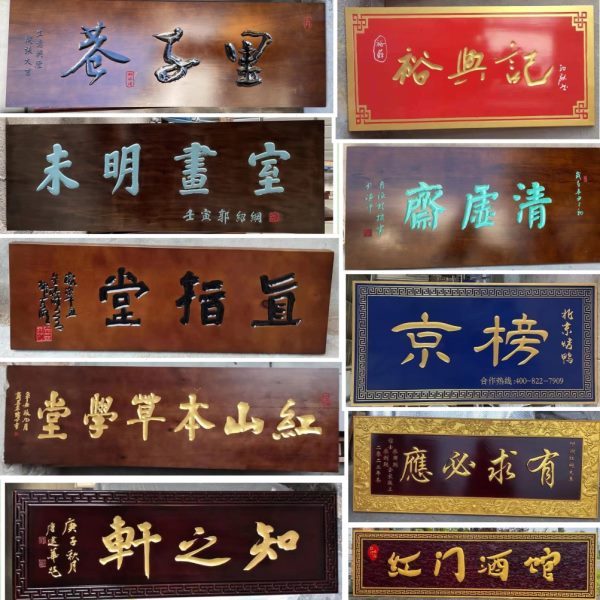 巷子里
裕興記
未明畫室
壬寅郭紹綱
清虛齋
直指堂
京榜
北京烤鸭
合作热线:400-822-7909
紅山本草學堂
有求必應
知之軒
庚子秋月
红门酒馆